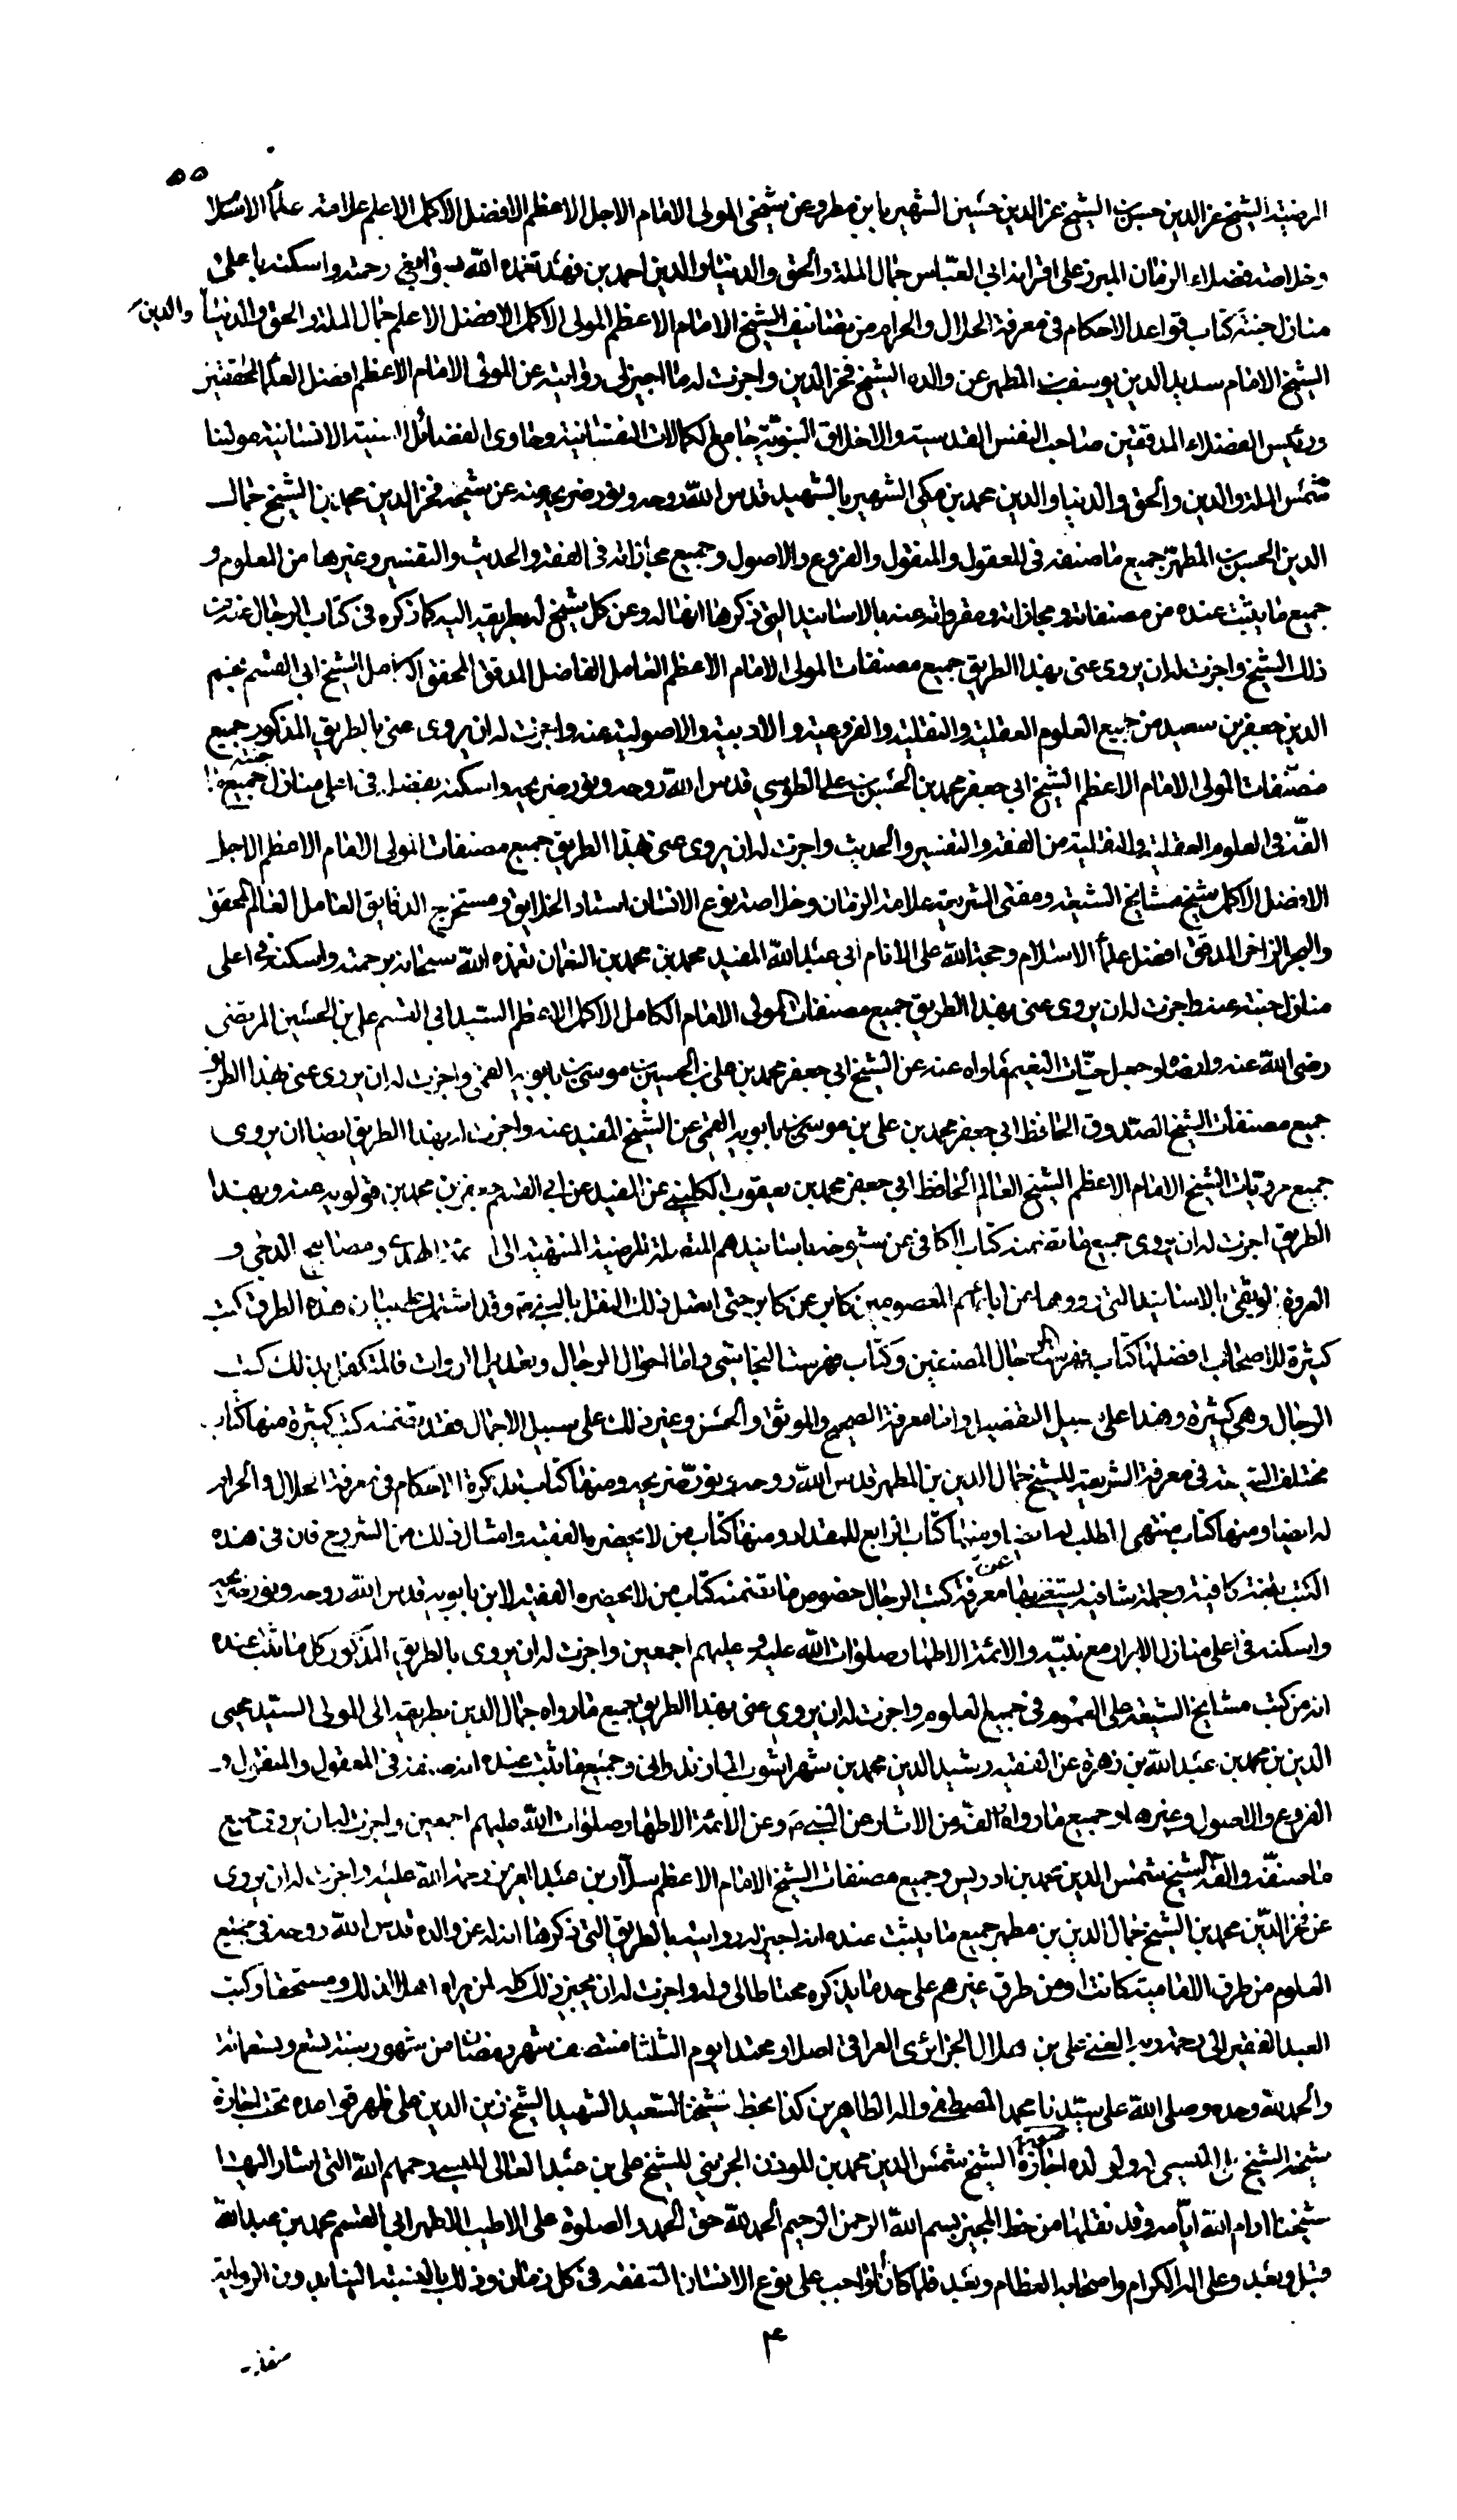 ٥٥
المرضية الشيخ عز الدين حسن بن الشيخ عز الدين حسين الشهير بابن مطر وعن شيخي المولى الامام الاجل الاعظم الافضل الاكمل الاعلم علامة علماء الاسلام
وخلاصة فضلاء الزمان المبرز على اقرانه ابي العباس جمال الملة والحق والدنيا والدين احمد بن فهد تغمده الله بسوابغ رحمته واسكنه باعلى
منازل جنته كتاب قواعد الاحكام في معرفة الحلال والحرام من تصانيف الشيخ الامام الاعظم المولى الاكمل الافضل الاعلم جمال الملة والحق والدنيا والدين
الشيخ الامام سديد الدين يوسف بن المطهر عن والده الشيخ فخر الدين واجزت له ما اجيز لي روايته عن المولى الامام الاعظم افضل العلماء المحققين
ورئيس الفضلاء المدققين صاحب النفس القدسية والاخلاق النبوية جامع الكمالات النفسانية وحاوى الفضائل السنية الانسانية مولينا
شمس الملة والدين والحق والدنيا والدين محمد بن مكي الشهير بالشهيد قدس الله روحه ونور ضريحه عنه عن شيخه فخر الدين محمد بن الشيخ جمال
الدين الحسن بن المطهر جميع ما صنفه في المعقول والمنقول والفروع والاصول وجميع مجازاته في الفقه والحديث والتفسير وغيرها من العلوم و
جميع ما يثبت عنده من مصنفاته ومجازاته ومقرواته عنه بالاسانيد التي ذكرها انها له وعن كل شيخ له بطريقه اليه كما ذكره في كتاب الرجال عند
ذلك الشيخ واجزت له ان يروى عني بهذا الطريق جميع مصنفات المولى الامام الاعظم العامل الفاضل المدقق المحقق الكامل الشيخ ابي القسم نجم
الدين جعفر بن سعيد من جميع العلوم العقلية والنقلية والفروعية والادبية والاصولية عنه واجزت له ان يروى عني بالطريق المذكور جميع
مصنفات المولى الامام الاعظم الشيخ ابي جعفر محمد بن الحسن بن علي الطوسي قدس الله روحه ونور ضريحه واسكنه بفضله في اعلى منازل جنته جميع ما
الفه في العلوم العقلية والنقلية من الفقه والتفسير والحديث واجزت له ان يروى عني بهذا الطريق جميع مصنفات المولى الامام الاعظم الاجل
الافضل الاكمل شيخ مشايخ الشيعة ومفتى الشريعة علامة الزمان وخلاصة نوع الانسان استاد الخلايق ومستخرج الدقايق العامل العالم المحقق
والبحر الزاخر المدقق افضل علماء الاسلام وحجة الله على الانام ابي عبد الله المفيد محمد بن محمد بن النعمان تغمده الله سبحانه برحمته واسكنه في اعلى
منازل جنته عنه واجزت له ان يروى عني بهذا الطريق جميع مصنفات المولى الامام الكامل الاكمل الاعظم السيد ابي القسم علي بن الحسين المرتضى
رضي الله عنه وارضاه وجعل جنات النعيم مأواه عنه عن الشيخ ابي جعفر محمد بن علي بن الحسين بن موسى بن بابويه القمي واجزت له ان يروى عني بهذا الطريق
جميع مصنفات الشيخ الصدوق الحافظ ابي جعفر محمد بن علي بن موسى بن بابويه القمي عن الشيخ المفيد عنه واجزت له بهذا الطريق ايضا ان يروى
جميع مرويات الشيخ الامام الاعظم الشيخ العالم الحافظ ابي جعفر محمد بن يعقوب الكليني عن المفيد عن ابي القسم جعفر بن محمد بن قولويه عنه وبهذا
الطريق اجزت له ان يروى جميع ما تضمنه كتاب الكافي عن شيوخه باسانيدهم المتصلة المرضية المنتهية الى ائمة الهدى ومصابيح الدجى و
العروة الوثقى بالاسانيد التي رووها عن ابائهم المعصومين كابر عن كابر حتى اتصل ذلك النقل بالنبي وقد اشتمل على بيان هذه الطرق كتب
كثيرة للاصحاب افضلها كتاب فهرست حال المصنفين وكتاب فهرست النجاشي واما احوال الرجال وتعديل الروات فالمتكفل بذلك كتب
الرجال وهي كثيرة وهذا على سبيل التفصيل واما معرفة الصحيح والموثق والحسن وغير ذلك على سبيل الاجمال فقد تضمنه كتب كثيرة منها كتاب
مختلف الشيعة في معرفة الشريعة للشيخ جمال الدين بن المطهر قدس الله روحه ونور ضريحه ومنها كتاب تذكرة الاحكام في معرفة الحلال والحرام
له ايضا ومنها كتاب منتهى المطلب له ايضا ومنها كتاب الرابع للمقداد ومنها كتاب من لا يحضره الفقيه وامثال ذلك من الشروح فان في هذه
الكتب بلغة كافية وجملة شافية يستغنى بها عن معرفة كتب الرجال خصوص ما تضمنه كتاب من لا يحضره الفقيه لابن بابويه قدس الله روحه ونور ضريحه
واسكنه في اعلى منازل الابرار مع نبيه والائمة الاطهار صلوات الله عليه وعليهم اجمعين واجزت له ان يروى بالطريق المذكور كل ما يثبت عنده
انه من كتب مشايخ الشيعة على العموم في جميع العلوم واجزت له ان يروى عني بهذا الطريق جميع ما رواه جمال الدين بطريقه الى المولى السيد محيى
الدين بن محمد بن عبد الله بن زهرة عن الفقيه رشيد الدين محمد بن شهراشوب المازندراني وجميع ما يثبت عنده انه صنفه في المعقول والمنقول و
الفروع والاصول وغيرها وجميع ما رواه والفه من الاثار عن النبي ص وعن الائمة الاطهار صلوات الله عليهم اجمعين واجزت له ان يروى جميع
ما صنفه والفه الشيخ شمس الدين محمد بن ادريس وجميع مصنفات الشيخ الامام الاعظم سلار بن عبد العزيز رحمة الله عليه واجزت له ان يروى
عن فخر الدين محمد بن الشيخ جمال الدين بن مطهر جميع ما يثبت عنده انه اجيز له روايته بالطريق التي ذكرها انه له عن والده قدس الله روحه في جميع
العلوم من طرق الامامية كانت او من طرق غيرهم على حد ما يذكره محتاطا لي وله واجزت له ان يجيز ذلك كله لمن يراه اهلا لذلك ومستحقا وكتب
العبد الفقير الى رحمة ربه الغني علي بن هلال الجزائرى العراقي اصلا ومحتدا يوم الثلثا منتصف شهر رمضان من شهور سنة تسع وتسعمائة
والحمد لله وحده وصلى الله على سيدنا محمد المصطفى واله الطاهرين كذا بخط شيخنا السعيد الشهيد الشيخ زين الدين على ظهر قواعده تحت اجازة
شيخه الشيخ علي الميسي له ولولده صورة اجازة الشيخ شمس الدين محمد بن المؤذن الجزيني للشيخ علي بن عبد العالى الميسي رحمهم الله التي اشار اليها
شيخنا ادام الله ايامه وقد نقلتها من خط المجيز بسم الله الرحمن الرحيم الحمد لله حق الحمد والصلوة على الاطيب الاطهر ابي القسم محمد بن عبد الله
قبل وبعد وعلى اله الكرام واصحابه العظام وبعد فلما كان الواجب على نوع الانسان التفقه في كل زمان وذلك بالنسبة الينا بدون الرواية
۴